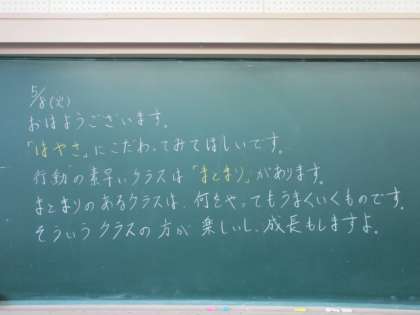 5/8(火)
おはようございます。
「はやさ」にこだわってみてほしいです。
行動の素早いクラスは「まとまり」があります。
まとまりのあるクラスは、何をやってもうまくいくものです。
そういうクラスの方が楽しいし、成長もしますよ。